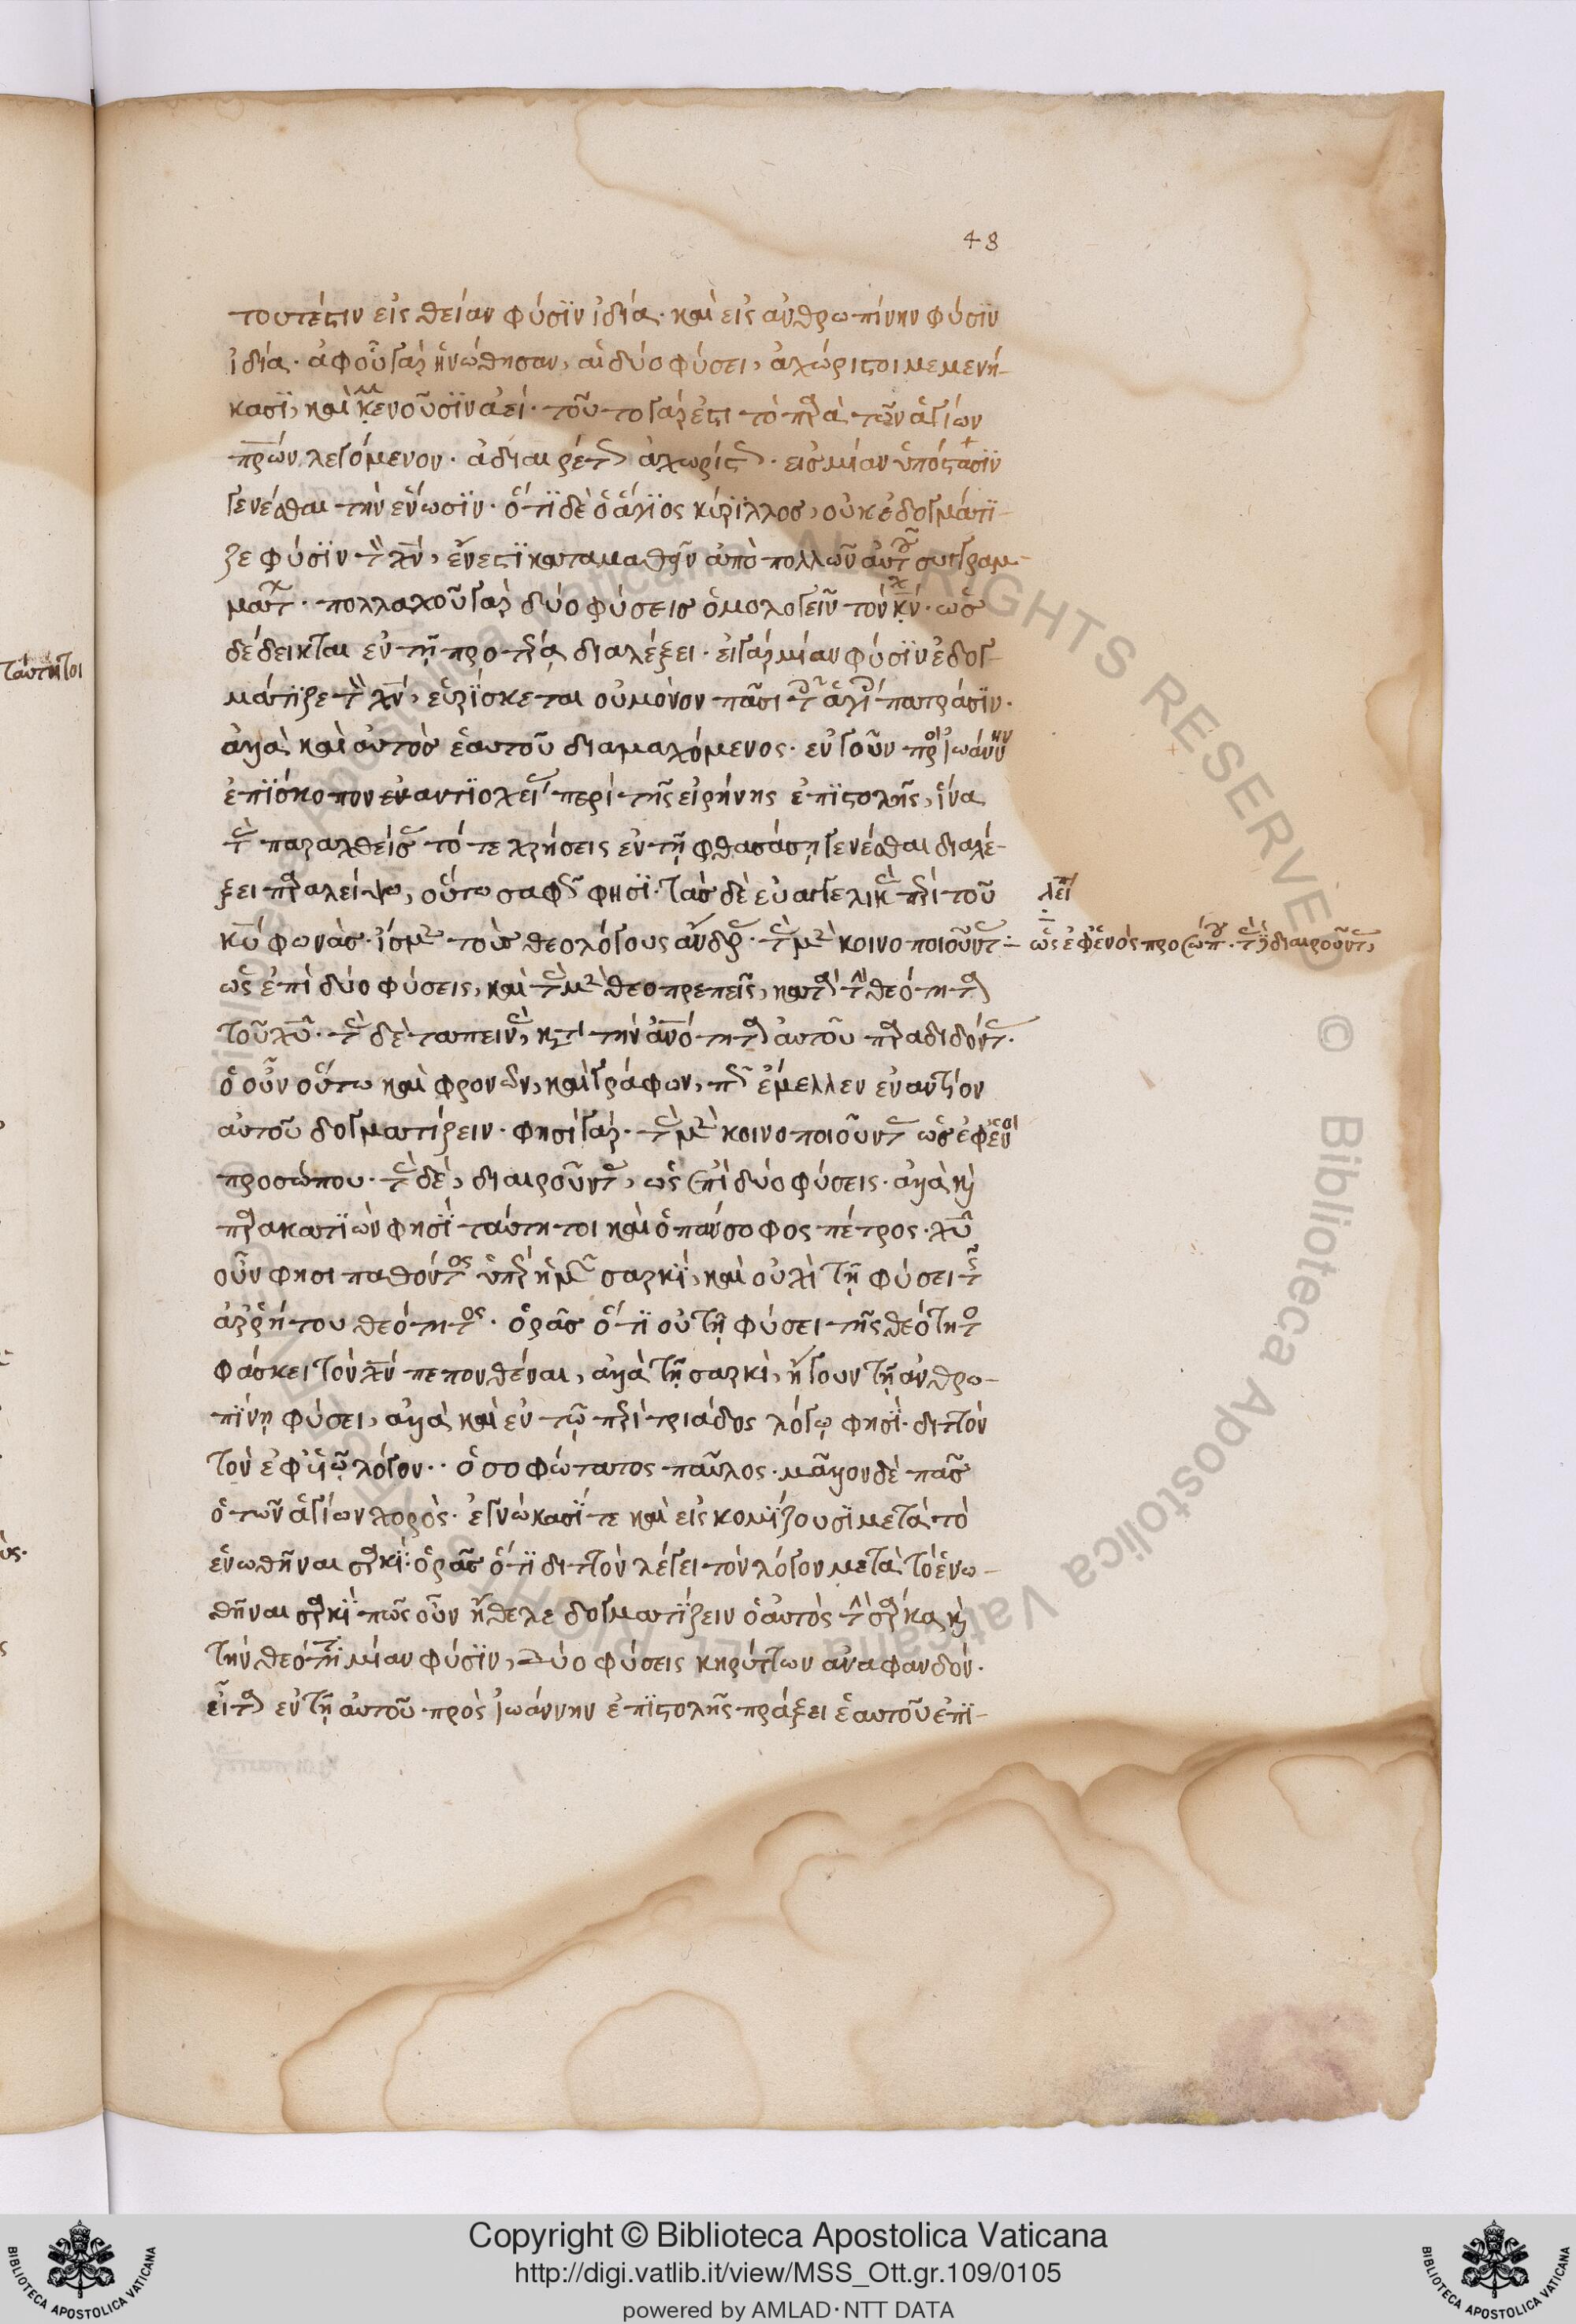 48
τουτέστιν εἰς θείαν φύσϊν ἰδία. καὶ εἰς ἀνθρωπίνην φύσϊν
ἰδία. ἀφοὗ γαρ ἡνώθησαν, αἱ δύο φύσει, ἀχώριστοι μεμενή-
κασϊ, καὶ μενοῦσϊν ἀεί. τοῦτο γάρ ἐστι τὸ παρὰ τῶν ἁγίων
πρων λεγόμενον. ἀδιαιρέτως ἀχωρίστως. εἰς μίαν ὑπόστασϊν
γενέσθαι τὴν ἕνωσϊν. ὅτϊ δὲ ὁ ἅγϊος κύρϊλλος, οὐκ ἐδογμάτϊ-
ζε φύσϊν τοῦ χυ, ἔνεστϊ καταμαθεῖν ἀπὸ πολλῶν αὐτοῦ συγγραμ-
μάτων. πολλαχοῦ γὰρ δύο φύσεις ὁμολογεῖν τὸν χν. ὡς
δέδεικται ἐν τῇ προτέρᾳ διαλέξει. εἰ γὰρ μίαν φύσϊν ἐδογ-
μάτϊζε τοῦ χυ, εὑρΐσκεται οὐ μόνον πᾶσι τοῖς ἁγίοις πατράσϊν.
ἀλλὰ καὶ αὐτὸς ἑαυτοῦ διαμαχόμενος. ἐν γοῦν πρὸς ἰωάννην
ἐπΐσκοπον ἐν ἀντϊοχείας περὶ τῆς εἰρήνης ἐπϊστολῆς, ἵνα
τὰς παραχθείσας τότε χρήσεις ἐν τῇ φθασάσῃ γενέσθαι διαλέ-
ξει παραλείψω, οὕτω σαφῶς φησϊ. τὰς δὲ εὐαγγελικὰς περὶ τοῦ
κυ φωνὰς. ἴσμεν τοὺς θεολόγους ἄνδρας. τὰς μὲν κοινοποιοῦντας
ὡς ἐπὶ δύο φύσεις, καὶ τὰς μὲν θεοπρεπεῖς, κατὰ τὴν θεότητα
τοῦ χυ. τὰς δὲ ταπεινὰς, κατὰ τὴν ἀνότητα αὐτοῦ παραδιδόντας.
ὁ οὖν οὕτω καὶ φρονῶν, καὶ γράφων, πῶς ἔμελλεν ἐναντίον
αὐτοῦ δογματίζειν. φησὶ γάρ. τὰς μὲν κοινοποιοῦντας ὡς ἐφ ἑνὸς
προσώπου. τὰς δὲ, διαιροῦντας, ὡς ἐπὶ δύο φύσεις. ἀλλὰ καὶ
παρακατϊὼν φησῒ ταύτη τοι καὶ ὁ πάνσοφος πέτρος. χυ
οὖν φησι παθόντος ὑπὲρ ἡμῶν σαρκϊ, καὶ οὐχὶ τῇ φύσει τῆς
ἀρρήτου θεότητος. ὁρᾶς ὅτϊ οὐ τῇ φύσει τῆς θεότητος
φάσκει τὸν χν πεπονθέναι, ἀλλὰ τῇ σαρκὶ, ἤγουν τῇ ἀνθρω-
πΐνῃ φύσει, ἀλλὰ καὶ ἐν τῷ περὶ τριάδος λόγῳ φησΐ. διττὸν
τὸν ἐφ ἡμῶν λόγον.. ὁ σοφώτατος παῦλος. μᾶλλον δὲ πᾶς
ὁ τῶν ἁγίων χορὸς. ἐγνώκασΐ τε καὶ εἰσκομΐζουσϊ μετὰ τὸ
ἑνωθῆναι σαρκϊ. ὁρᾶς ὅτϊ διττὸν λέγει τὸν λόγον μετὰ τὸ ἑνω-
θῆναι σαρκϊ. πῶς οὖν ἤθελε δογματΐζειν ὁ αὐτὸς τὴν σάρκα καὶ
τὴν θεότητα μίαν φύσϊν, δύο φύσεις κηρύττων ἀναφανδόν.
εἶτα ἐν τῇ αὐτοῦ πρὸς ἰωάννην ἐπϊστολῆς πράξει ἑαυτοῦ ἐπϊ-
ὡς ἐφ ἑνὸς προσώπου. τὰς δὲ διαιροῦντας
ταύτητοι
Copyright © Biblioteca Apostolica Vaticana
http://digi.vatlib.it/view/MSS_Ott.gr.109/0105
powered by AMLAD·NTT DATA
BIBLIOTECA APOSTOLICA VATICANA
BIBLIOTECA APOSTOLICA VATICANA